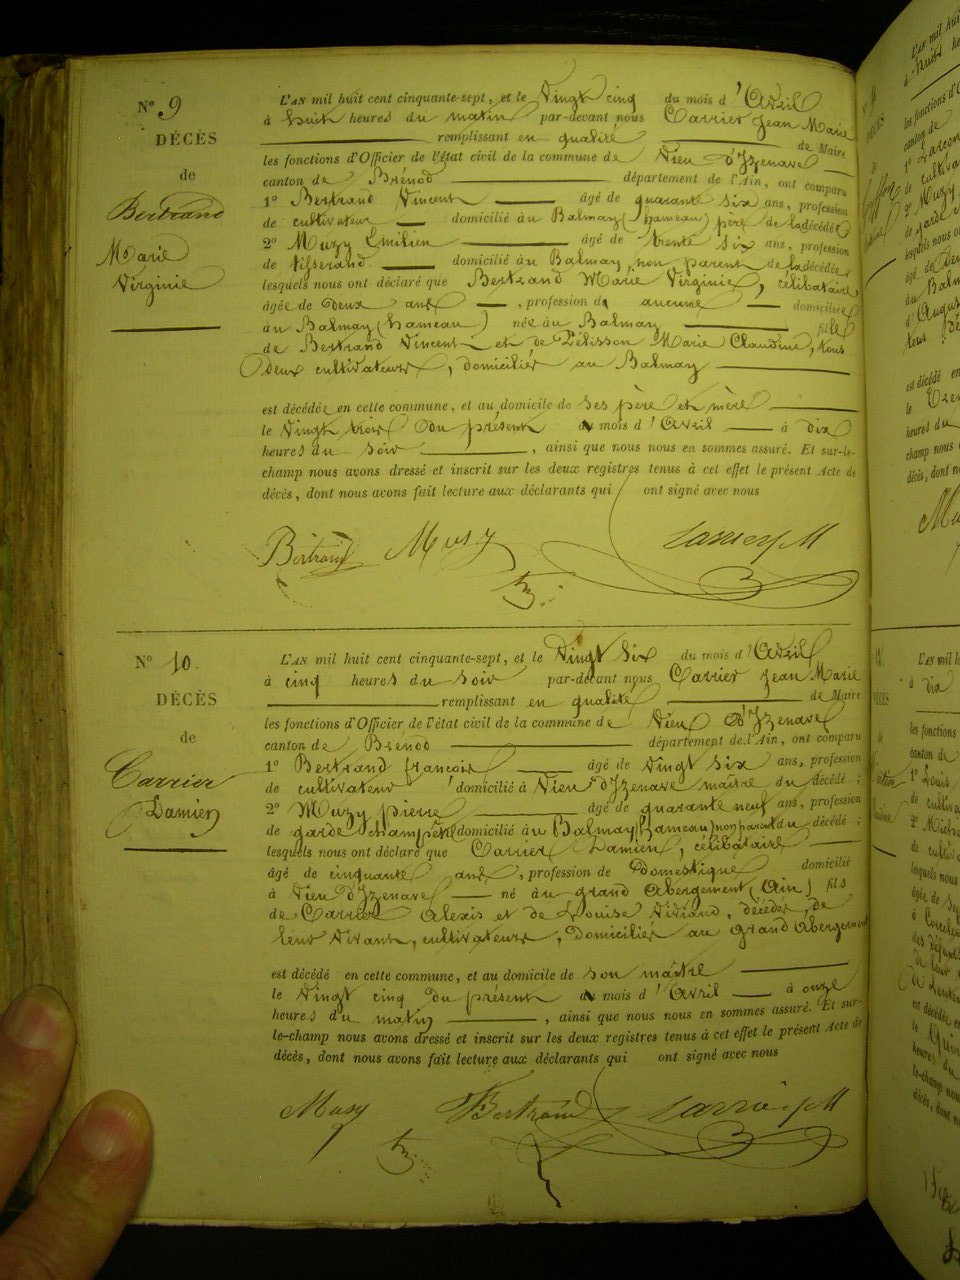 N° 9
DÉCÈS
de
Bertrand
Marie
Virginie
L'AN mil huit cent cinquante-sept, et le Vingt cinq du mois d'Avril
à huit heures du matin par-devant nous Carrier Jean Marie
remplissant en qualité de Maire
les fonctions d'Officier de l'état civil de la commune de Vieu d'Izenave
canton de Brénod département de l'Ain, ont comparu
1° Bertrand Vincent âgé de quarante six ans, profession
de cultivateur domicilié au Balmay (hameau) père de la décédée
2° Muzy Emilien âgé de trente six ans, profession
de tisserand domicilié au Balmay, non parent de la décédée,
lesquels nous ont déclaré que Bertrand Marie Virginie, célibataire,
âgée de deux ans, profession d aucune domiciliée
au Balmay (hameau) née au Balmay fille
de Bertrand Vincent et de Pélisson Marie Claudine, tous
deux cultivateurs, domiciliés au Balmay
est décédée en cette commune, et au domicile de ses père et mère
le Vingt trois du présent mois d'Avril à dix
heures du soir, ainsi que nous nous en sommes assuré. Et sur-le-
champ nous avons dressé et inscrit sur les deux registres tenus à cet effet le présent Acte de
décès, dont nous avons fait lecture aux déclarants qui ont signé avec nous
Bertrand Musy Carrier JM
N° 10.
DÉCÈS
de
Carrier
Damien
L'AN mil huit cent cinquante-sept, et le Vingt six du mois d'Avril
à cinq heures du soir par-devant nous Carrier Jean Marie
remplissant en qualité de Maire
les fonctions d'Officier de l'état civil de la commune de Vieu d'Izenave
canton de Brénod département de l'Ain, ont comparu
1° Bertrand françois âgé de vingt six ans, profession
de cultivateur domicilié à Vieu d'Izenave maître du décédé ;
2° Muzy pierre âgé de quarante neuf ans, profession
de garde champêtre domicilié au Balmay (hameau) non parent du décédé ;
lesquels nous ont déclaré que Carrier Damien, célibataire
âgé de cinquante ans, profession de Domestique domicilié
à Vieu d'Izenave né au grand Abergement (Ain) fils
de Carrier Alexis et de Louise Viviand, décédés, de
leur vivant, cultivateurs, domiciliés au grand Abergement
est décédé en cette commune, et au domicile de son maître
le Vingt cinq du présent mois d'Avril à onze
heures du matin, ainsi que nous nous en sommes assuré. Et sur-
le-champ nous avons dressé et inscrit sur les deux registres tenus à cet effet le présent Acte de
décès, dont nous avons fait lecture aux déclarants qui ont signé avec nous
Musy Bertrand Carrier JM